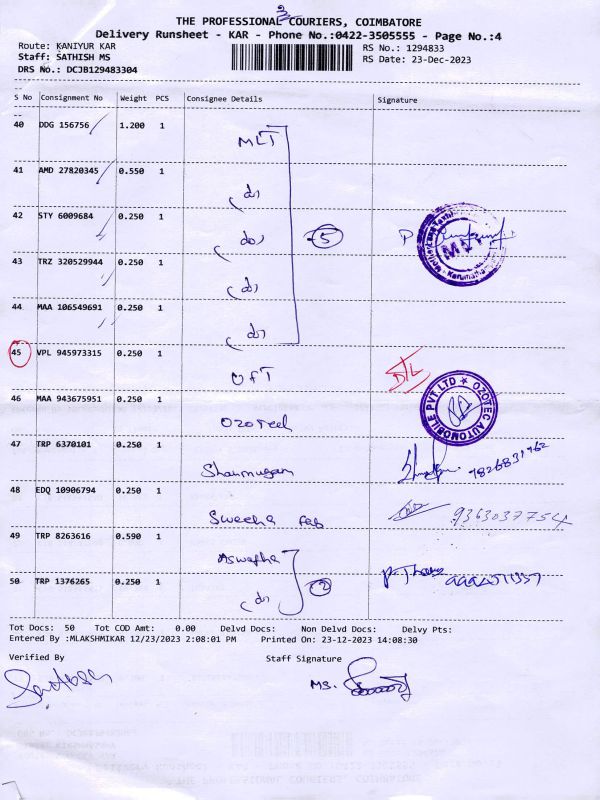 THE PROFESSIONAL COURIERS, COIMBATORE
Delivery Runsheet - KAR - Phone No.:0422-3505555 - Page No.:4
Route: KANIYUR KAR RS No.: 1294833
Staff: SATHISH MS RS Date: 23-Dec-2023
DRS No.: DCJB129483304
S No Consignment No Weight PCS Consignee Details Signature
40 DDG 156756 1.200 1 MLT
41 AMD 27820345 0.550 1 (do)
42 STY 6009684 0.250 1 (do) 5
43 TRZ 320529944 0.250 1 (do)
44 MAA 106549691 0.250 1 (do)
45 VPL 945973315 0.250 1 OFT D/L
46 MAA 943675951 0.250 1 Ozotech OZOTEC AUTOMOBILE PVT. LTD
47 TRP 6370101 0.250 1 Shanmugam
48 EDQ 10906794 0.250 1 Sweeha Feb 9363037754
49 TRP 8263616 0.590 1 Aswatha
50 TRP 1376265 0.250 1 (do) 2
Tot Docs: 50 Tot COD Amt: 0.00 Delvd Docs: Non Delvd Docs: Delvy Pts:
Entered By :MLAKSHMIKAR 12/23/2023 2:08:01 PM Printed On: 23-12-2023 14:08:30
Verified By Staff Signature
MS.